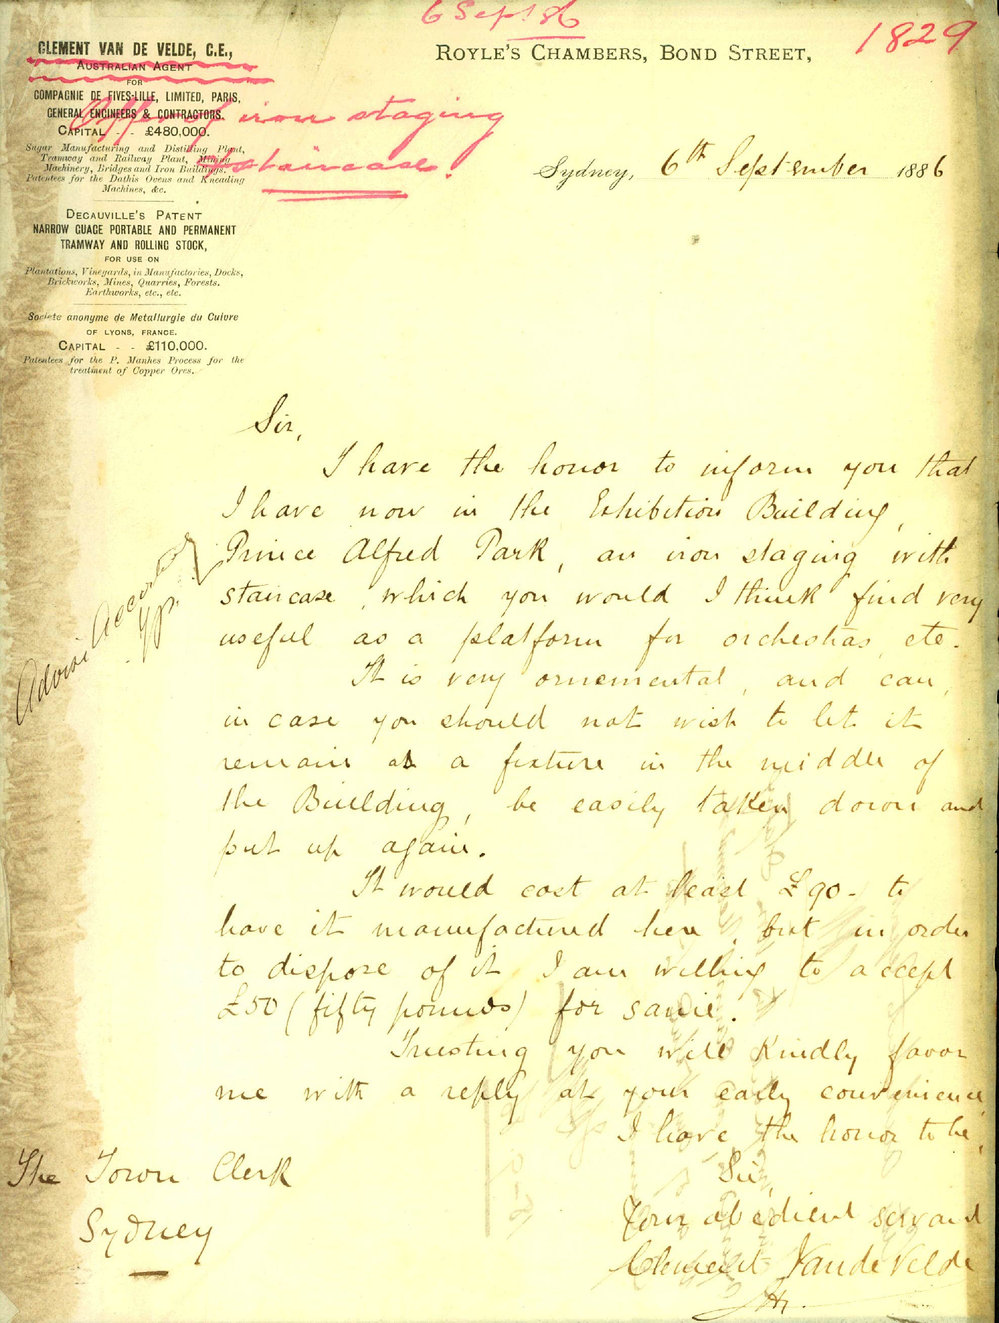 6 Sept 86
1829
CLEMENT VAN DE VELDE, C.E.,
AUSTRALIAN AGENT
FOR
COMPAGNIE DE FIVES-LILLE, LIMITED, PARIS,
GENERAL ENGINEERS & CONTRACTORS.
CAPITAL - - £480,000.
Sugar Manufacturing and Distilling Plant,
Tramway and Railway Plant, Mining
Machinery, Bridges and Iron Buildings.
Patentees for the Dathis Ovens and Kneading
Machines, &c.
DECAUVILLE'S PATENT
NARROW GUAGE PORTABLE AND PERMANENT
TRAMWAY AND ROLLING STOCK,
FOR USE ON
Plantations, Vinegards, in Manufactories, Docks,
Brickworks, Mines, Quarries, Forests.
Earthworks, etc., etc.
Societe anonyme de Metallurgie du Cuivre
OF LYONS, FRANCE.
CAPITAL - - £110,000.
Patentees for the P. Manhes Process for the
treatment of Copper Ores.
Offer of iron staging
& staircase.
ROYLE'S CHAMBERS, BOND STREET,
Sydney, 6th September 1886
Sir,
I have the honor to inform you that
I have now in the Exhibition Building,
Prince Alfred Park, an iron staging with
staircase, which you would I think find very
useful as a platform for orchestras, etc.
It is very ornemental, and can,
in case you should not wish to let it
remain as a fixture in the middle of
the Building, be easily taken down and
put up again.
It would cost at least £90- to
have it manufactured here, but in order
to dispose of it I am willing to accept
£50 (fifty pounds) for same.
Trusting you will kindly favor
me with a reply at your early convenience,
I have the honor to be,
Sir,
Your obedient servant
Clement Van de Velde
The Town Clerk
Sydney